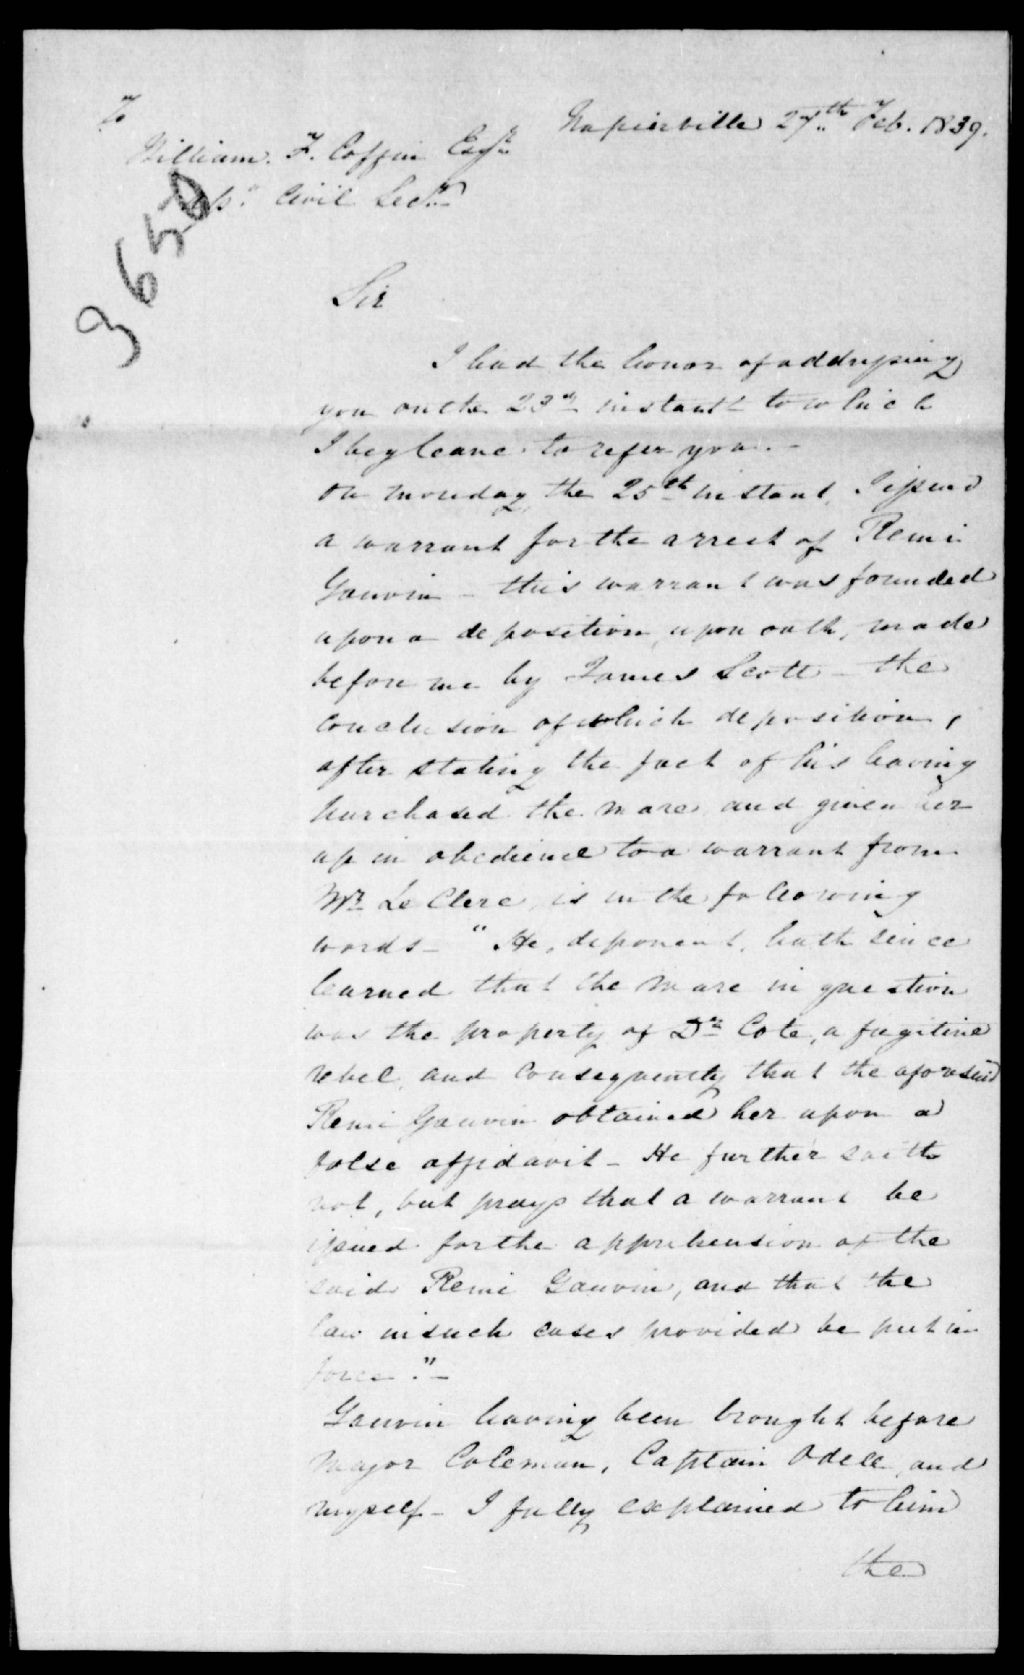 To
Napierville 27th Feb. 1839.
William. F. Coffin Esqr.
Civil Secy
3650
Sir
I had the honor of addressing
you on the 23d instant to which
I beg leave to refer you. -
On monday the 25th instant, I issued
a warrant for the arrest of Remi
Gauvin - this warrant was founded
upon a deposition, upon oath, made
before me by James Scott - the
conclusion of which deposition,
after stating the fact of his having
purchased the mare and given her
up in obedience to a warrant from
Mr. Le Clerc, is in the following
words - "He, deponent, hath since
learned that the mare in question
was the property of Dr. Cote, a fugitive
rebel, and consequently that the aforesaid
Remi Gauvin obtained her upon a
false affidavit - He further saith
not, but prays that a warrant be
issued for the apprehension of the
said Remi Gauvin, and that the
law in such cases provided be put in
force." -
Gauvin having been brought before
Major Coleman, Captain Odell, and
myself - I fully explained to him
the